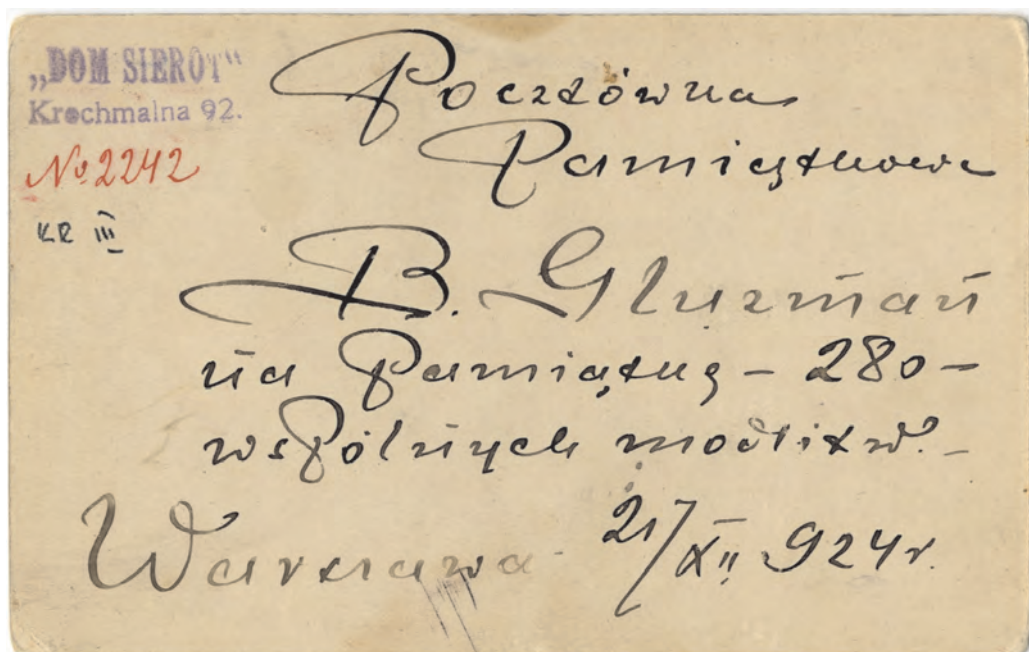 „DOM SIEROT“
Krochmalna 92.
№ 2242
KR III
Pocztówka
Pamiątkowa
B. Gluzman
na Pamiątkę – 280 –
wspólnych modlitw. –
Warszawa 21/XII 924 r.